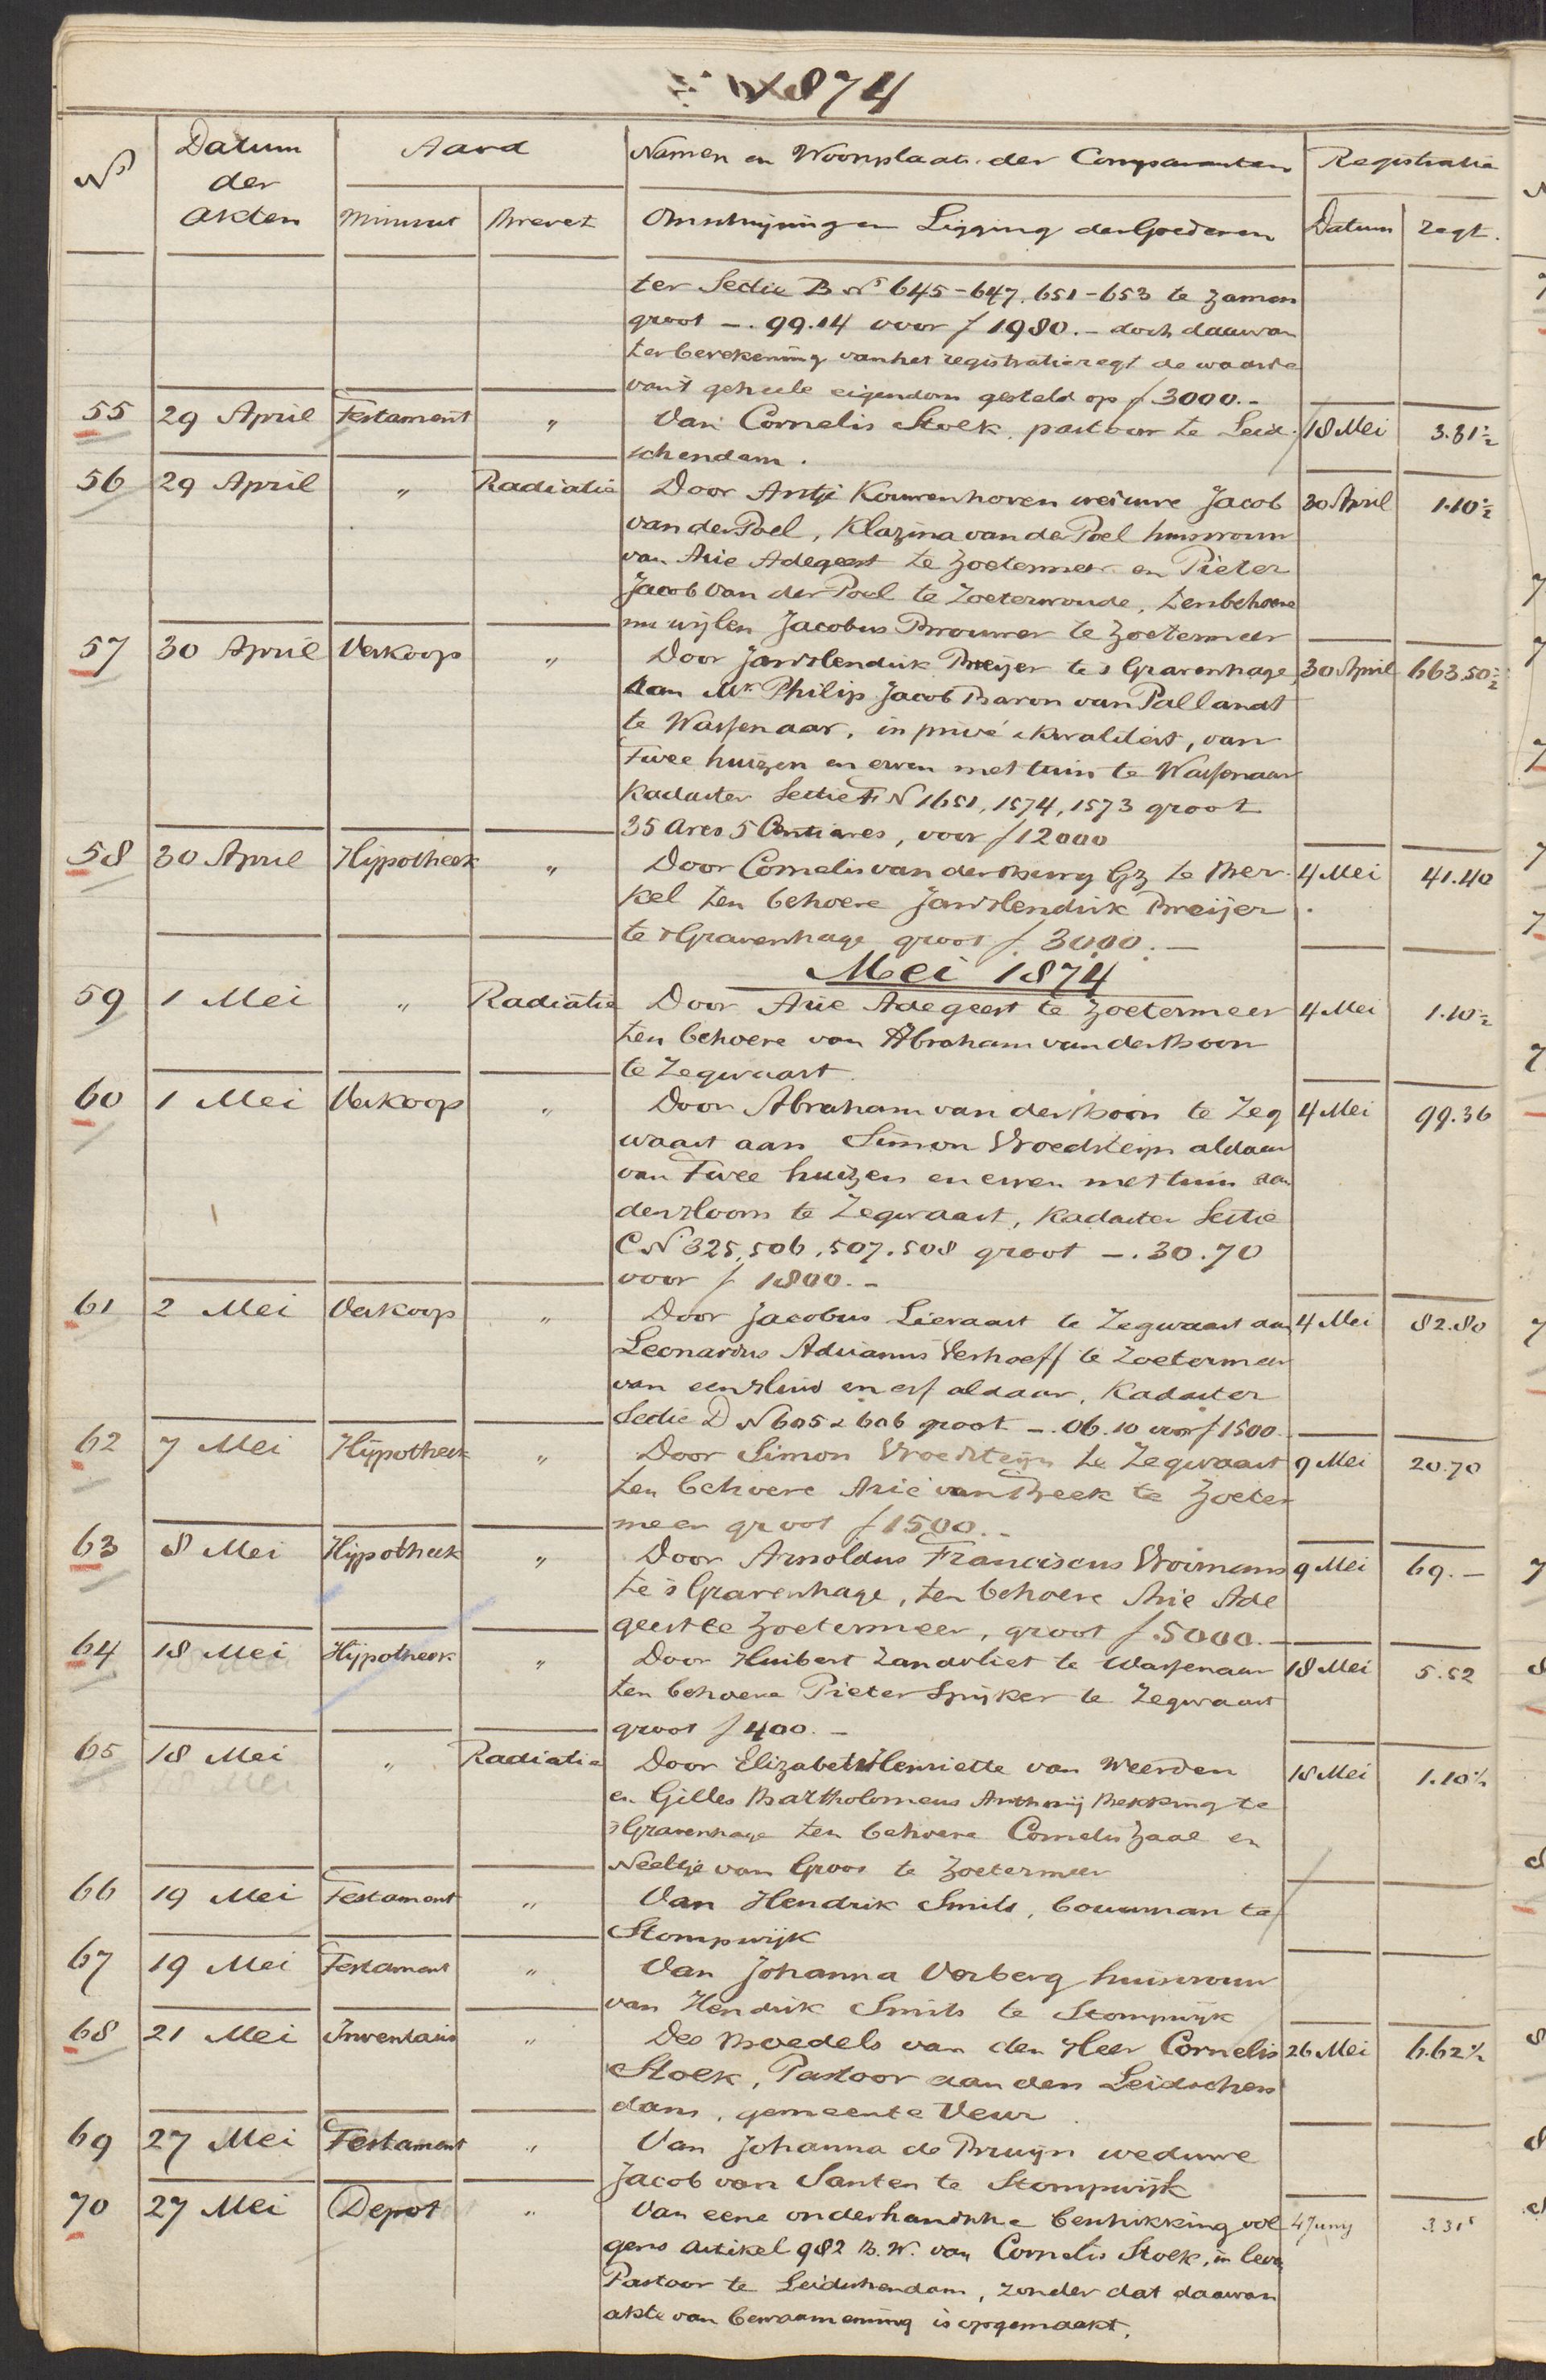 1874
No Datum der Akten Aard Namen en Woonplaats der Comparanten Registratie
Minuut Brevet Omschrijving en Ligging der Goederen Datum Regt.
ter Sectie B No 645-647, 651-653 te zamen
groot -. 99.14 voor f 1980.- doch daarvan
ter berekening van het registratieregt de waarde
van 't geheele eigendom gesteld op f 3000.-
55 29 April Testament " Van Cornelis Stolk, pastoor te Leid- 18 Mei 3.31½
schendam.
56 29 April " Radiatie Door Antje Kouwenhoven weduwe Jacob 30 April 1.10½
van der Poel, Klazina van der Poel huisvrouw
van Arie Adegeest te Zoetermeer en Pieter
Jacob van der Poel te Zoeterwoude, ten behoeve
nu wijlen Jacobus Brouwer te Zoetermeer
57 30 April Verkoop " Door Jan Hendrik Breijer te 's Gravenhage 30 April 663.50½
aan Mr. Philip Jacob Baron van Pallandt
te Wassenaar, in privé & kwaliteit, van
Twee huizen en erven met tuin te Wassenaar
Kadaster Sectie F No 1651, 1574, 1573 groot
35 Ares 5 Centiares, voor f 12000
58 30 April Hypotheek " Door Cornelis van der Burg Gz te Ber- 4 Mei 41.40
kel ten behoeve Jan Hendrik Breijer
te 's Gravenhage groot f 3000.-
Mei 1874
59 1 Mei " Radiatie Door Arie Adegeest te Zoetermeer 4 Mei 1.10½
ten behoeve van Abraham van der Boon
te Zegwaart.
60 1 Mei Verkoop " Door Abraham van der Boon te Zeg 4 Mei 99.36
waart aan Simon Vroedsteijn aldaar
van Twee huizen en erven met tuin aan
den Hoorn te Zegwaart, Kadaster Sectie
C No 325, 506, 507, 508 groot -. 30.70
voor f 1800.-
61 2 Mei Verkoop " Door Jacobus Lievaart te Zegwaart aan 4 Mei 82.80
Leonardus Adrianus Verhoeff te Zoetermeer
van een Huis en erf aldaar, Kadaster
Sectie D No 605 & 606 groot -. 06.10 voor f 1500.
62 7 Mei Hypotheek " Door Simon Vroedsteijn te Zegwaart 9 Mei 20.70
ten behoeve Arie van Beek te Zoeter
meer groot f 1500.-
63 8 Mei Hypotheek " Door Arnoldus Franciscus Vroimans 9 Mei 69.-
te 's Gravenhage, ten behoeve Arie Ade
geest te Zoetermeer, groot f 5000.-
64 18 Mei Hypotheek " Door Huibert Zandvliet te Wassenaar 18 Mei 5.52
ten behoeve Pieter Spijker te Zegwaart
groot f 400.-
65 18 Mei " Radiatie Door Elizabeth Henriette van Weerden 18 Mei 1.10½
en Gilles Bartholomeus Anthonij Bekking te
's Gravenhage ten behoeve Cornelis Zaal en
Neeltje van Groos te Zoetermeer
66 19 Mei Testament " Van Hendrik Smits, bouwman te
Stompwijk
67 19 Mei Testament " Van Johanna Verberg huisvrouw
van Hendrik Smits te Stompwijk
68 21 Mei Inventaris " Des Boedels van den Heer Cornelis 26 Mei 6.62½
Stolk, Pastoor aan den Leidschen
dam, gemeente Veur
69 27 Mei Testament " Van Johanna de Bruijn weduwe
Jacob van Santen te Stompwijk
70 27 Mei Depot " Van eene onderhandsche beschikking vol 4 Juny 3.31⁵
gens artikel 982 B.W. van Cornelis Stolk, in leven
Pastoor te Leidschendam, zonder dat daarvan
akte van bewaarneming is opgemaakt.